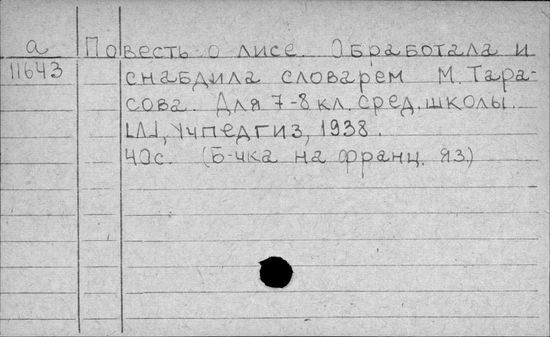 а Повесть о лисе. Обработала и
11643 снабдила словарем М. Тара-
сова. Для 7-8 кл. сред. школы.
[Л], Учпедгиз, 1938.
40с. (Б-чка на франц. яз.)